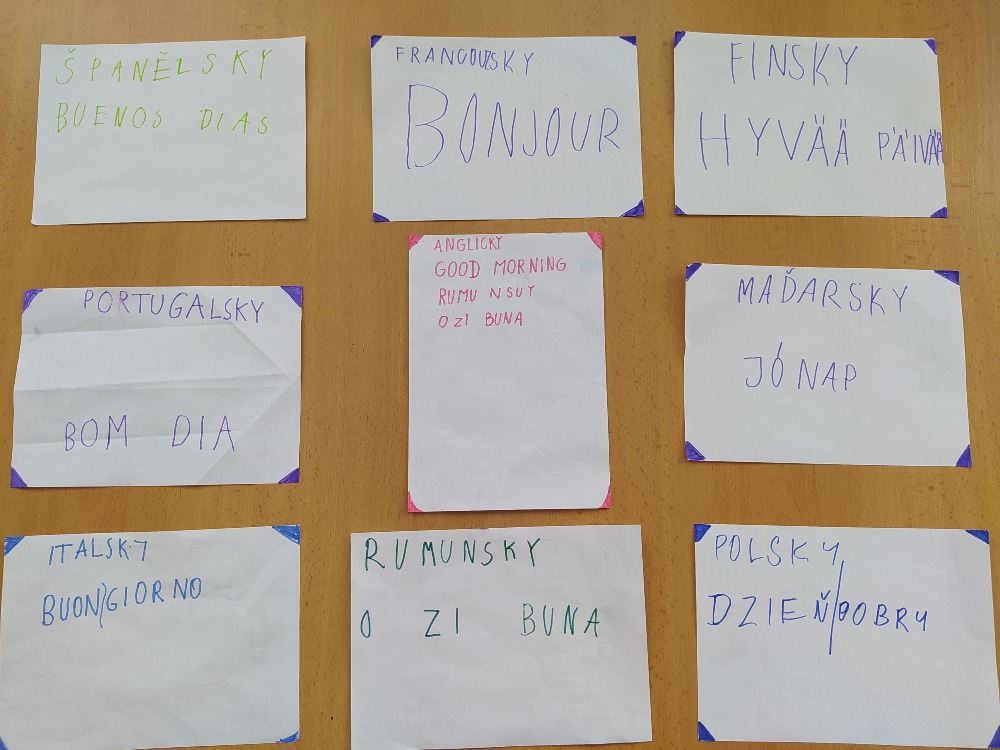 ŠPANĚLSKY
BUENOS DIAS
FRANCOUZSKY
BONJOUR
FINSKY
HYVÄÄ PÄIVÄÄ
PORTUGALSKY
BOM DIA
ANGLICKY
GOOD MORNING
RUMUNSUY
O ZI BUNA
MAĎARSKY
JÓNAP
ITALSKY
BUON/GIORNO
RUMUNSKY
O ZI BUNA
POLSKY
DZIEŇ/DOBRY